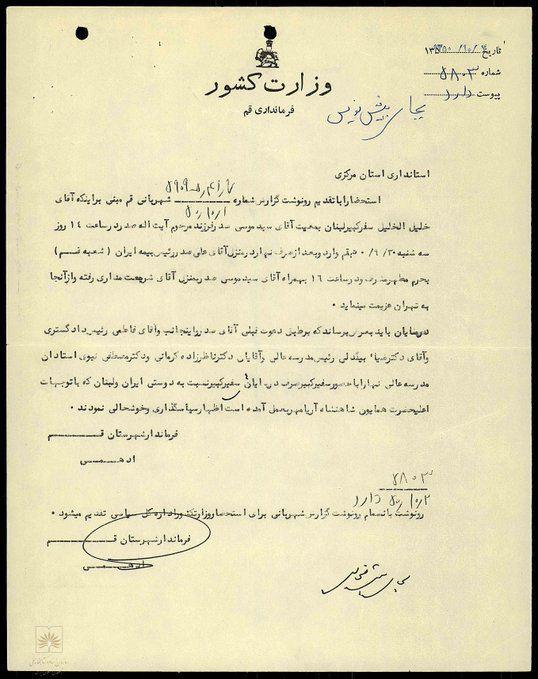 تاریخ ۱۳۵۰/۱۰/۲
شماره ۵۸۰۳
پیوست دارد
وزارت کشور
فرمانداری قم
بجای پیش نویس
استانداری استان مرکزی
استحضارا با تقدیم رونوشت گزارش شماره شهربانی قم مبنی براینکه آقای
خلیل الخلیل سفیرکبیر لبنان بمعیت آقای سید موسی صدر فرزند مرحوم آیت اله صدر در ساعت ۱۴ روز
سه شنبه ۳۰/۹/۵۰ بقم وارد و بعد از صرف نهار در منزل آقای علی صدر رئیس بیمه ایران (شعبه قم)
بحرم مطهر مشرف و در ساعت ۱۶ بهمراه آقای سید موسی صدر بمنزل آقای شریعت مداری رفته و از آنجا
به تهران عزیمت مینماید ۰
در پایان باید بعرض برساند که برطبق دعوت قبلی آقای صدر و اینجانب و آقای فاطمی رئیس دادگستری
وآقای دکتر ضیاء بیگدلی رئیس مدرسه عالی وآقایان دکتر ناظرزاده کرمانی ودکتر مصطفی نبوی استادان
مدرسه عالی نهار را با حضور سفیرکبیر صرف در پایان سفیرکبیر نسبت به دوستی ایران ولبنان که با توجهات
اعلیحضرت همایون شاهنشاه آریامهر بعمل آمده است اظهار سپاسگذاری وخوشحالی نمودند ۰
فرماندار شهرستان قم
ادهمی
۵۸۰۳
۵۰/۱۰/۲ دارد
رونوشت بانضمام رونوشت گزارش شهربانی برای استحضار وزارت کشور اداره کل سیاسی تقدیم میشود ۰
فرماندار شهرستان قم
ادهمی
بجای پیش نویس